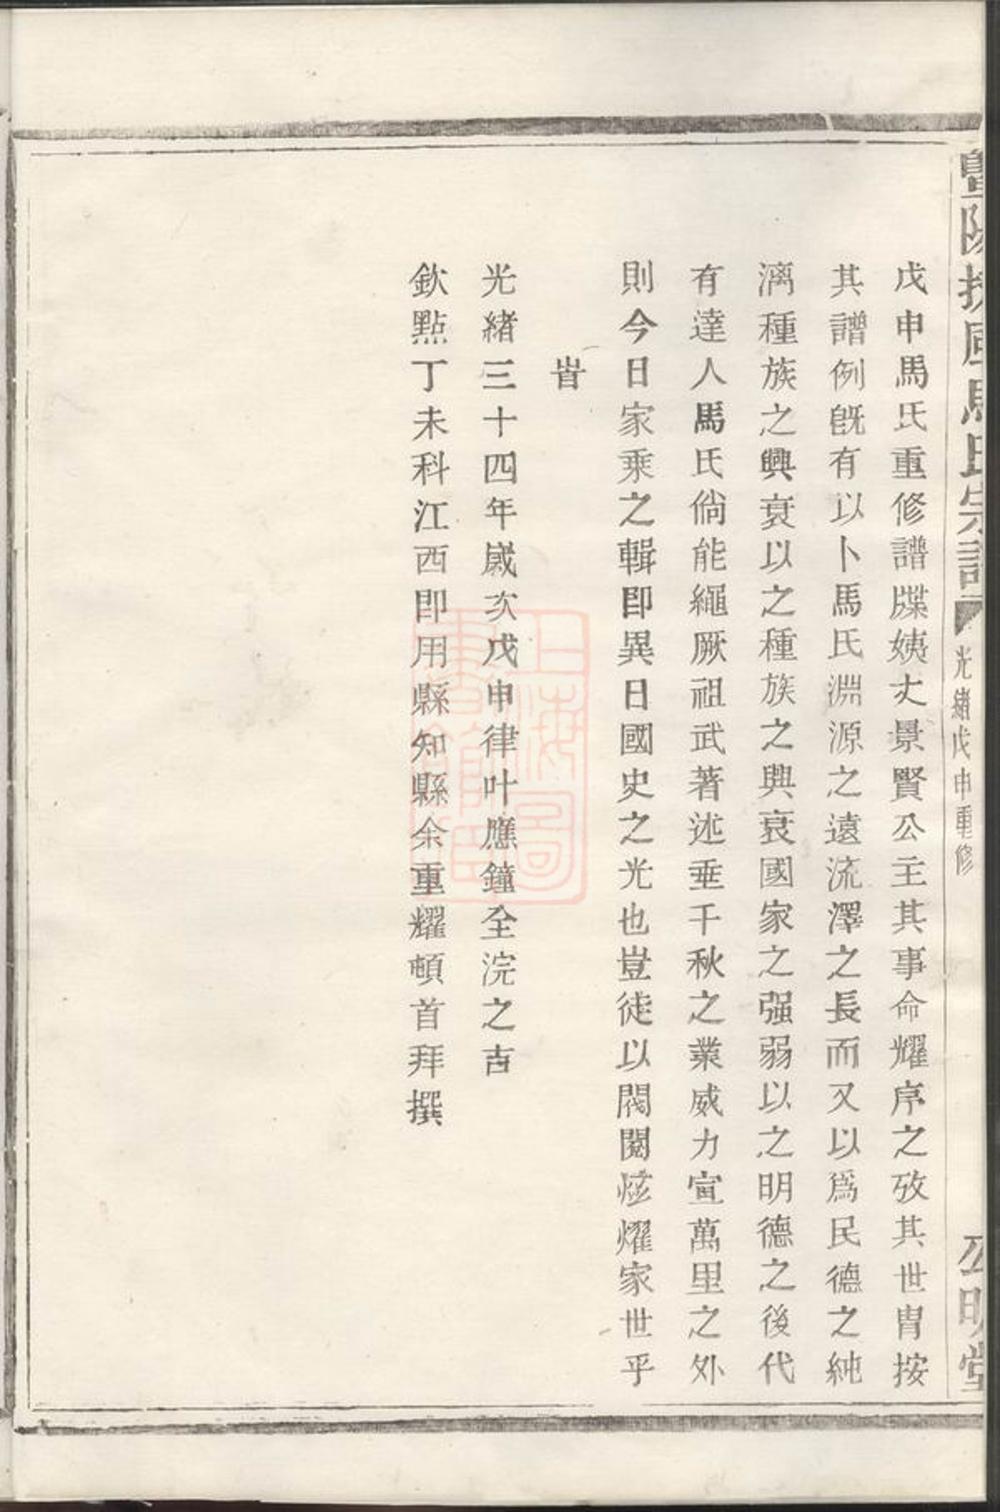 暨陽扶風馬氏宗譜
光緒戊申重修
公明堂
戊申馬氏重修譜牒姨丈景賢公主其事命耀序之攷其世胄按
其譜例旣有以卜馬氏淵源之遠流澤之長而又以爲民德之純
漓種族之興衰以之種族之興衰國家之强弱以之明德之後代
有達人馬氏倘能繩厥祖武著述垂千秋之業威力宣萬里之外
則今日家乘之輯卽異日國史之光也豈徒以閥閱炫燿家世乎
旹
光緒三十四年歲次戊申律叶應鐘全浣之吉
欽點丁未科江西卽用縣知縣余重耀頓首拜撰
上海圖書館藏